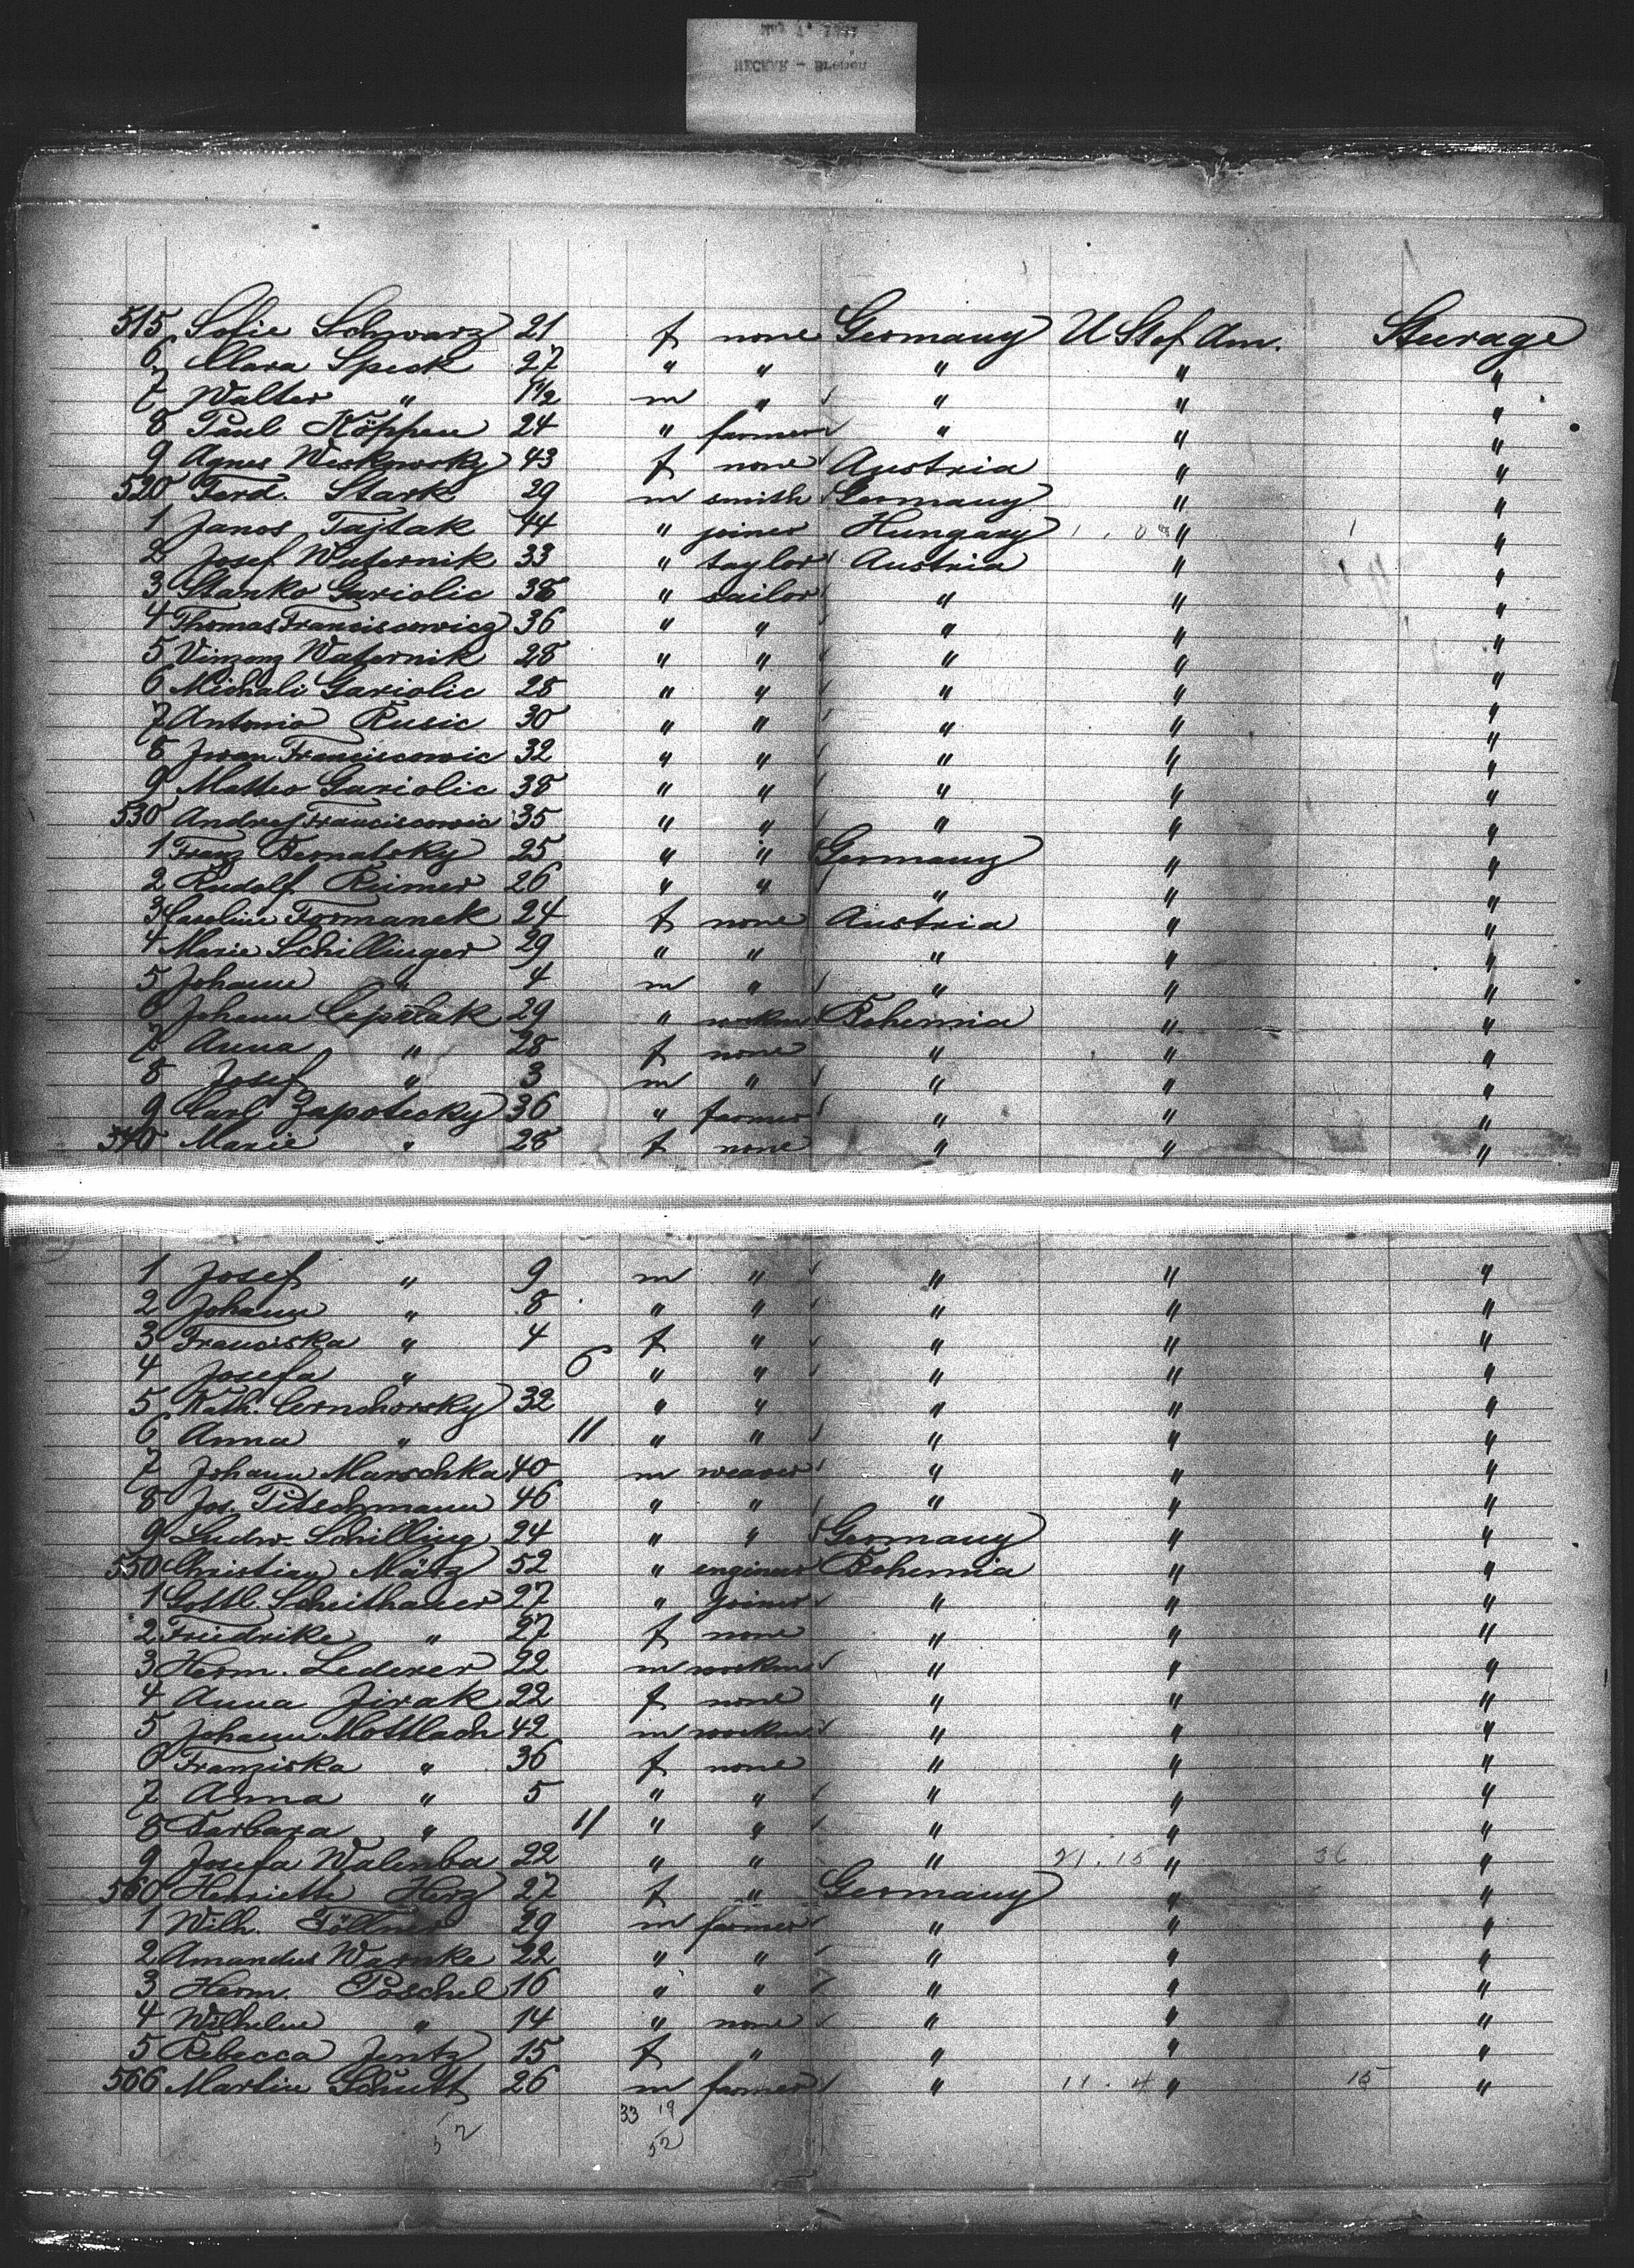 NECKAR - Bremen
515 Sofie Schwarz 21 f none Germany U St of Am. Steerage
6 Clara Speck 27 " " " " "
7 Walter " 1 1/2 m " " " "
8 Paul Köppen 24 " farmer " " "
9 Agnes Weskowsky 43 f none Austria " "
520 Ferd. Stark 29 m smith Germany " "
1 Janos Tajtak 44 " joiner Hungary " "
2 Josef Waternik 33 " taylor Austria " "
3 Stanko Gariolic 38 " sailor " " "
4 Thomas Franciscowicz 36 " " " " "
5 Vinzenz Waternik 28 " " " " "
6 Michali Gariolic 28 " " " " "
7 Antonio Rusic 30 " " " " "
8 Jwan Franciscowic 32 " " " " "
9 Matteo Gariolic 38 " " " " "
530 Andrej Franciscowic 35 " " " " "
1 Franz Bernatsky 25 " " Germany " "
2 Rudolf Reimer 26 " " " " "
3 Caroline Formanek 24 f none Austria " "
4 Marie Schillinger 29 " " " " "
5 Johann " 4 m " " " "
6 Johann Cepelak 29 " workm Bohemia " "
7 Anna " 28 f none " " "
8 Josef " 3 m " " " "
9 Carl Zapotecky 36 " farmer " " "
540 Marie " 28 f none " " "
1 Josef " 9 m " " " "
2 Johann " 8 " " " " "
3 Franciska " 4 f " " " "
4 Josefa " 6 " " " " "
5 Kath. Cernohorsky 32 " " " " "
6 Anna " 11 " " " " "
7 Johann Marschka 40 m weaver " " "
8 Jos. Pitschmann 46 " " " " "
9 Ludw. Schilling 24 " " Germany " "
550 Christian März 52 " engineer Bohemia " "
1 Gottl. Scheithauer 27 " joiner " " "
2 Friedrike " 27 f none " " "
3 Herm. Lederer 22 m workm " " "
4 Anna Jirak 22 f none " " "
5 Johann Mottlach 42 m workm " " "
6 Franziska " 36 f none " " "
7 Anna " 5 " " " " "
8 Barbara " 11 " " " " "
9 Josefa Walenba 22 " " " " "
560 Henriette Herz 27 f " Germany " "
1 Wilh. Föllmer 29 m farmer " " "
2 Amandus Warnke 22 " " " " "
3 Herm. Poschel 16 " " " " "
4 Wilhelm " 14 " none " " "
5 Rebecca Jentz 15 f " " " "
566 Martin Schutt 26 m farmer " " "
33 19
52 52